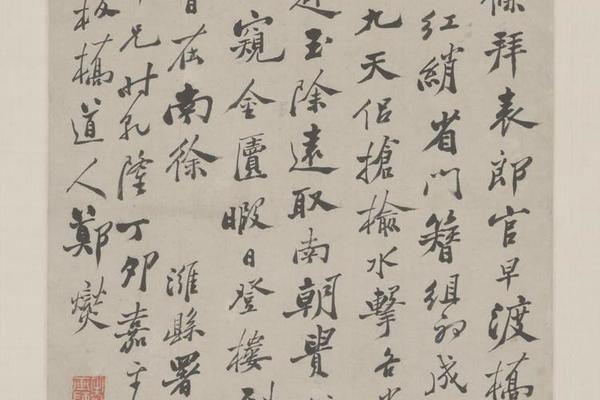 拜表郎官早渡橋
紅綃省門簪組初成
九天侣搶榆水擊各
近玉除遠取南朝貴
窺金匱暇日登樓
在南徐 濰縣署
兄时乾隆丁卯嘉平
板橋道人鄭燮